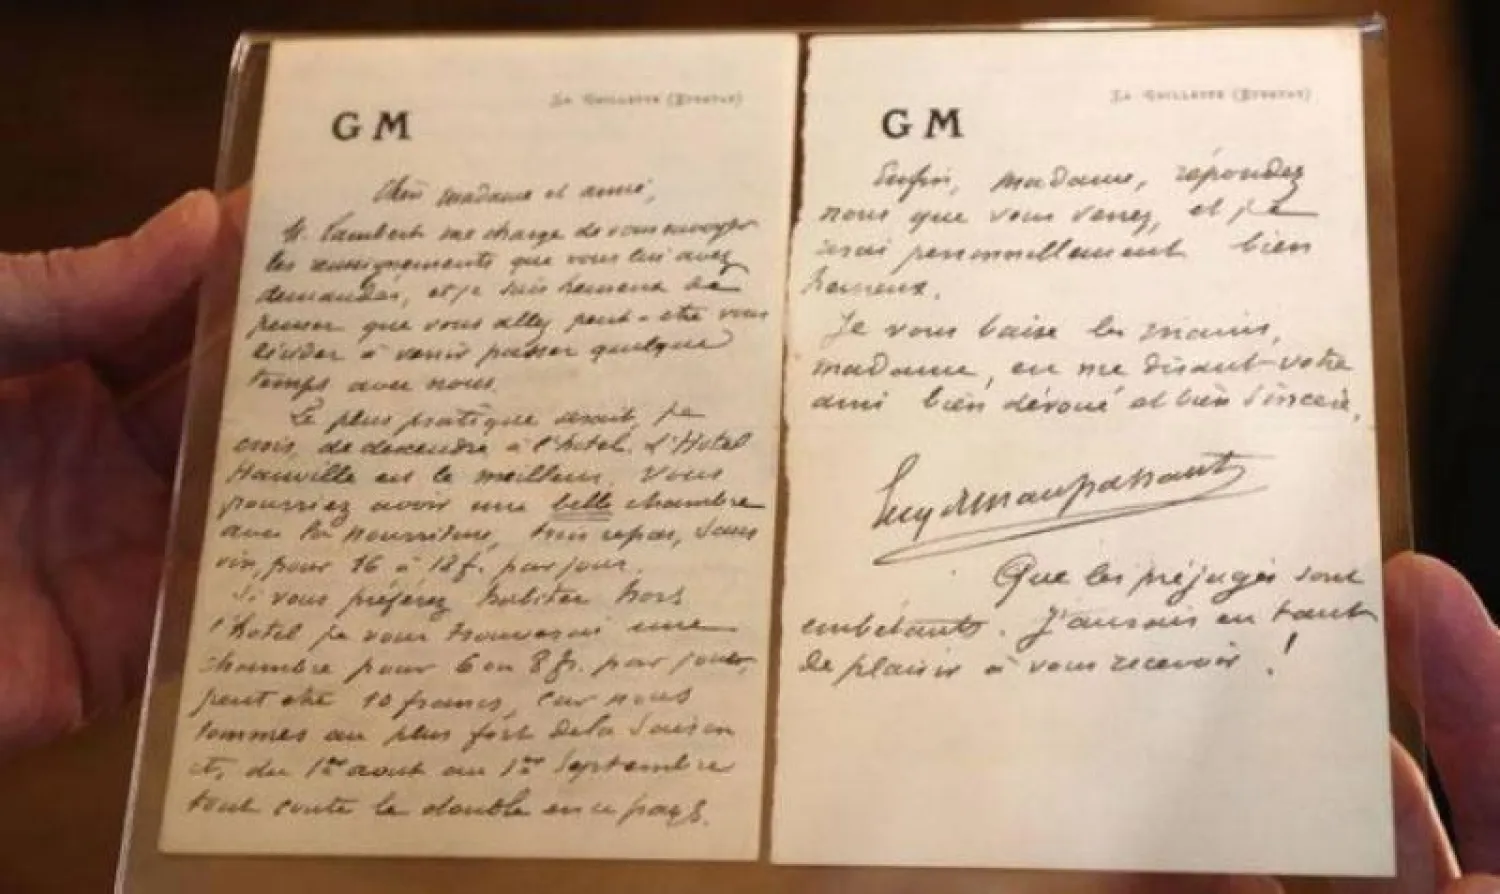 La Guillette (Etretat)
G M
Chère madame et amie,
M. Lambert me charge de vous envoyer
les renseignements que vous lui avez
demandés, et je suis heureux de
penser que vous allez peut-etre vous
décider à venir passer quelque
temps avec nous.
Le plus pratique serait, je
crois, de descendre à l'hotel. L'Hotel
Hauville est le meilleur. Vous
pourriez avoir une belle chambre
avec la nourriture, trois repas, sans
vin, pour 16 à 18 f. par jour.
Si vous préférez habiter hors
l'hotel je vous trouverai une
chambre pour 6 ou 8 fr. par jour,
peut etre 10 francs, car nous
sommes au plus fort de la saison
et, du 1er aout au 1er Septembre
tout coute le double en ce pays.
La Guillette (Etretat)
G M
Enfin, madame, répondez
nous que vous venez, et j'en
serai personnellement bien
heureux.
Je vous baise les mains,
madame, en me disant votre
ami bien dévoué et bien sincère.
Guy de Maupassant
Que les préjugés sont
embétants. J'aurais eu tant
de plaisir à vous recevoir !